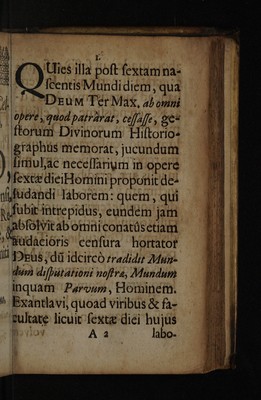 I.
QUies illa post sextam na-
scentis Mundi diem, qua
DEUM Ter Max, ab omni
opere, quod patrârat, cessasse, ge-
storum Divinorum Historio-
graphus memorat, jucundum
simul, ac necessarium in opere
sextæ diei Homini proponit de-
sudandi laborem: quem, qui
subit intrepidus, eundem jam
absolvit ab omni conatûs etiam
audacioris censura hortator
DEUS, dũ idcircò tradidit Mun-
dum disputationi nostræ, Mundum
inquam Parvum, Hominem.
Exantlavi, quoad viribus & fa-
cultate licuit sextæ diei hujus
A 2 labo-